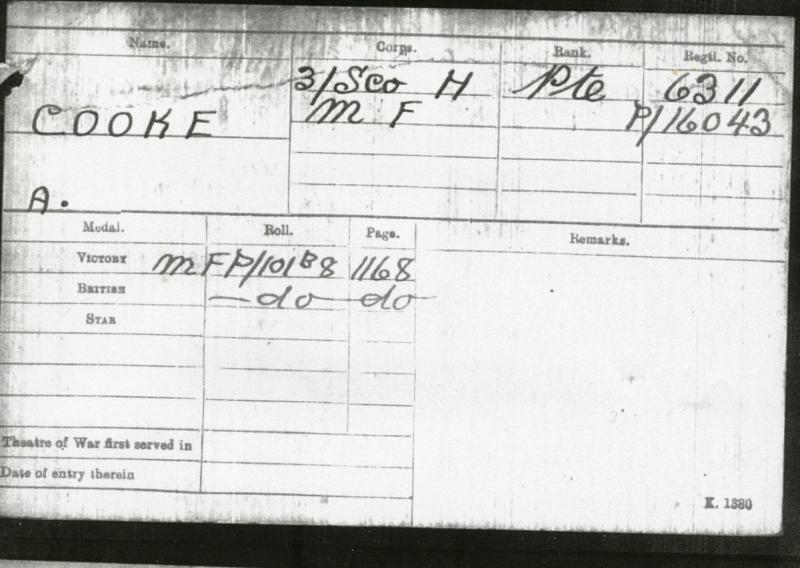 Name. Corps. Rank. Regtl. No.
3/Sco H Pte 6311
COOKE M F P/16043
A.
Medal. Roll. Page. Remarks.
VICTORY MFP/101B8 1168
BRITISH — do — do —
STAR
Theatre of War first served in
Date of entry therein
K. 1380